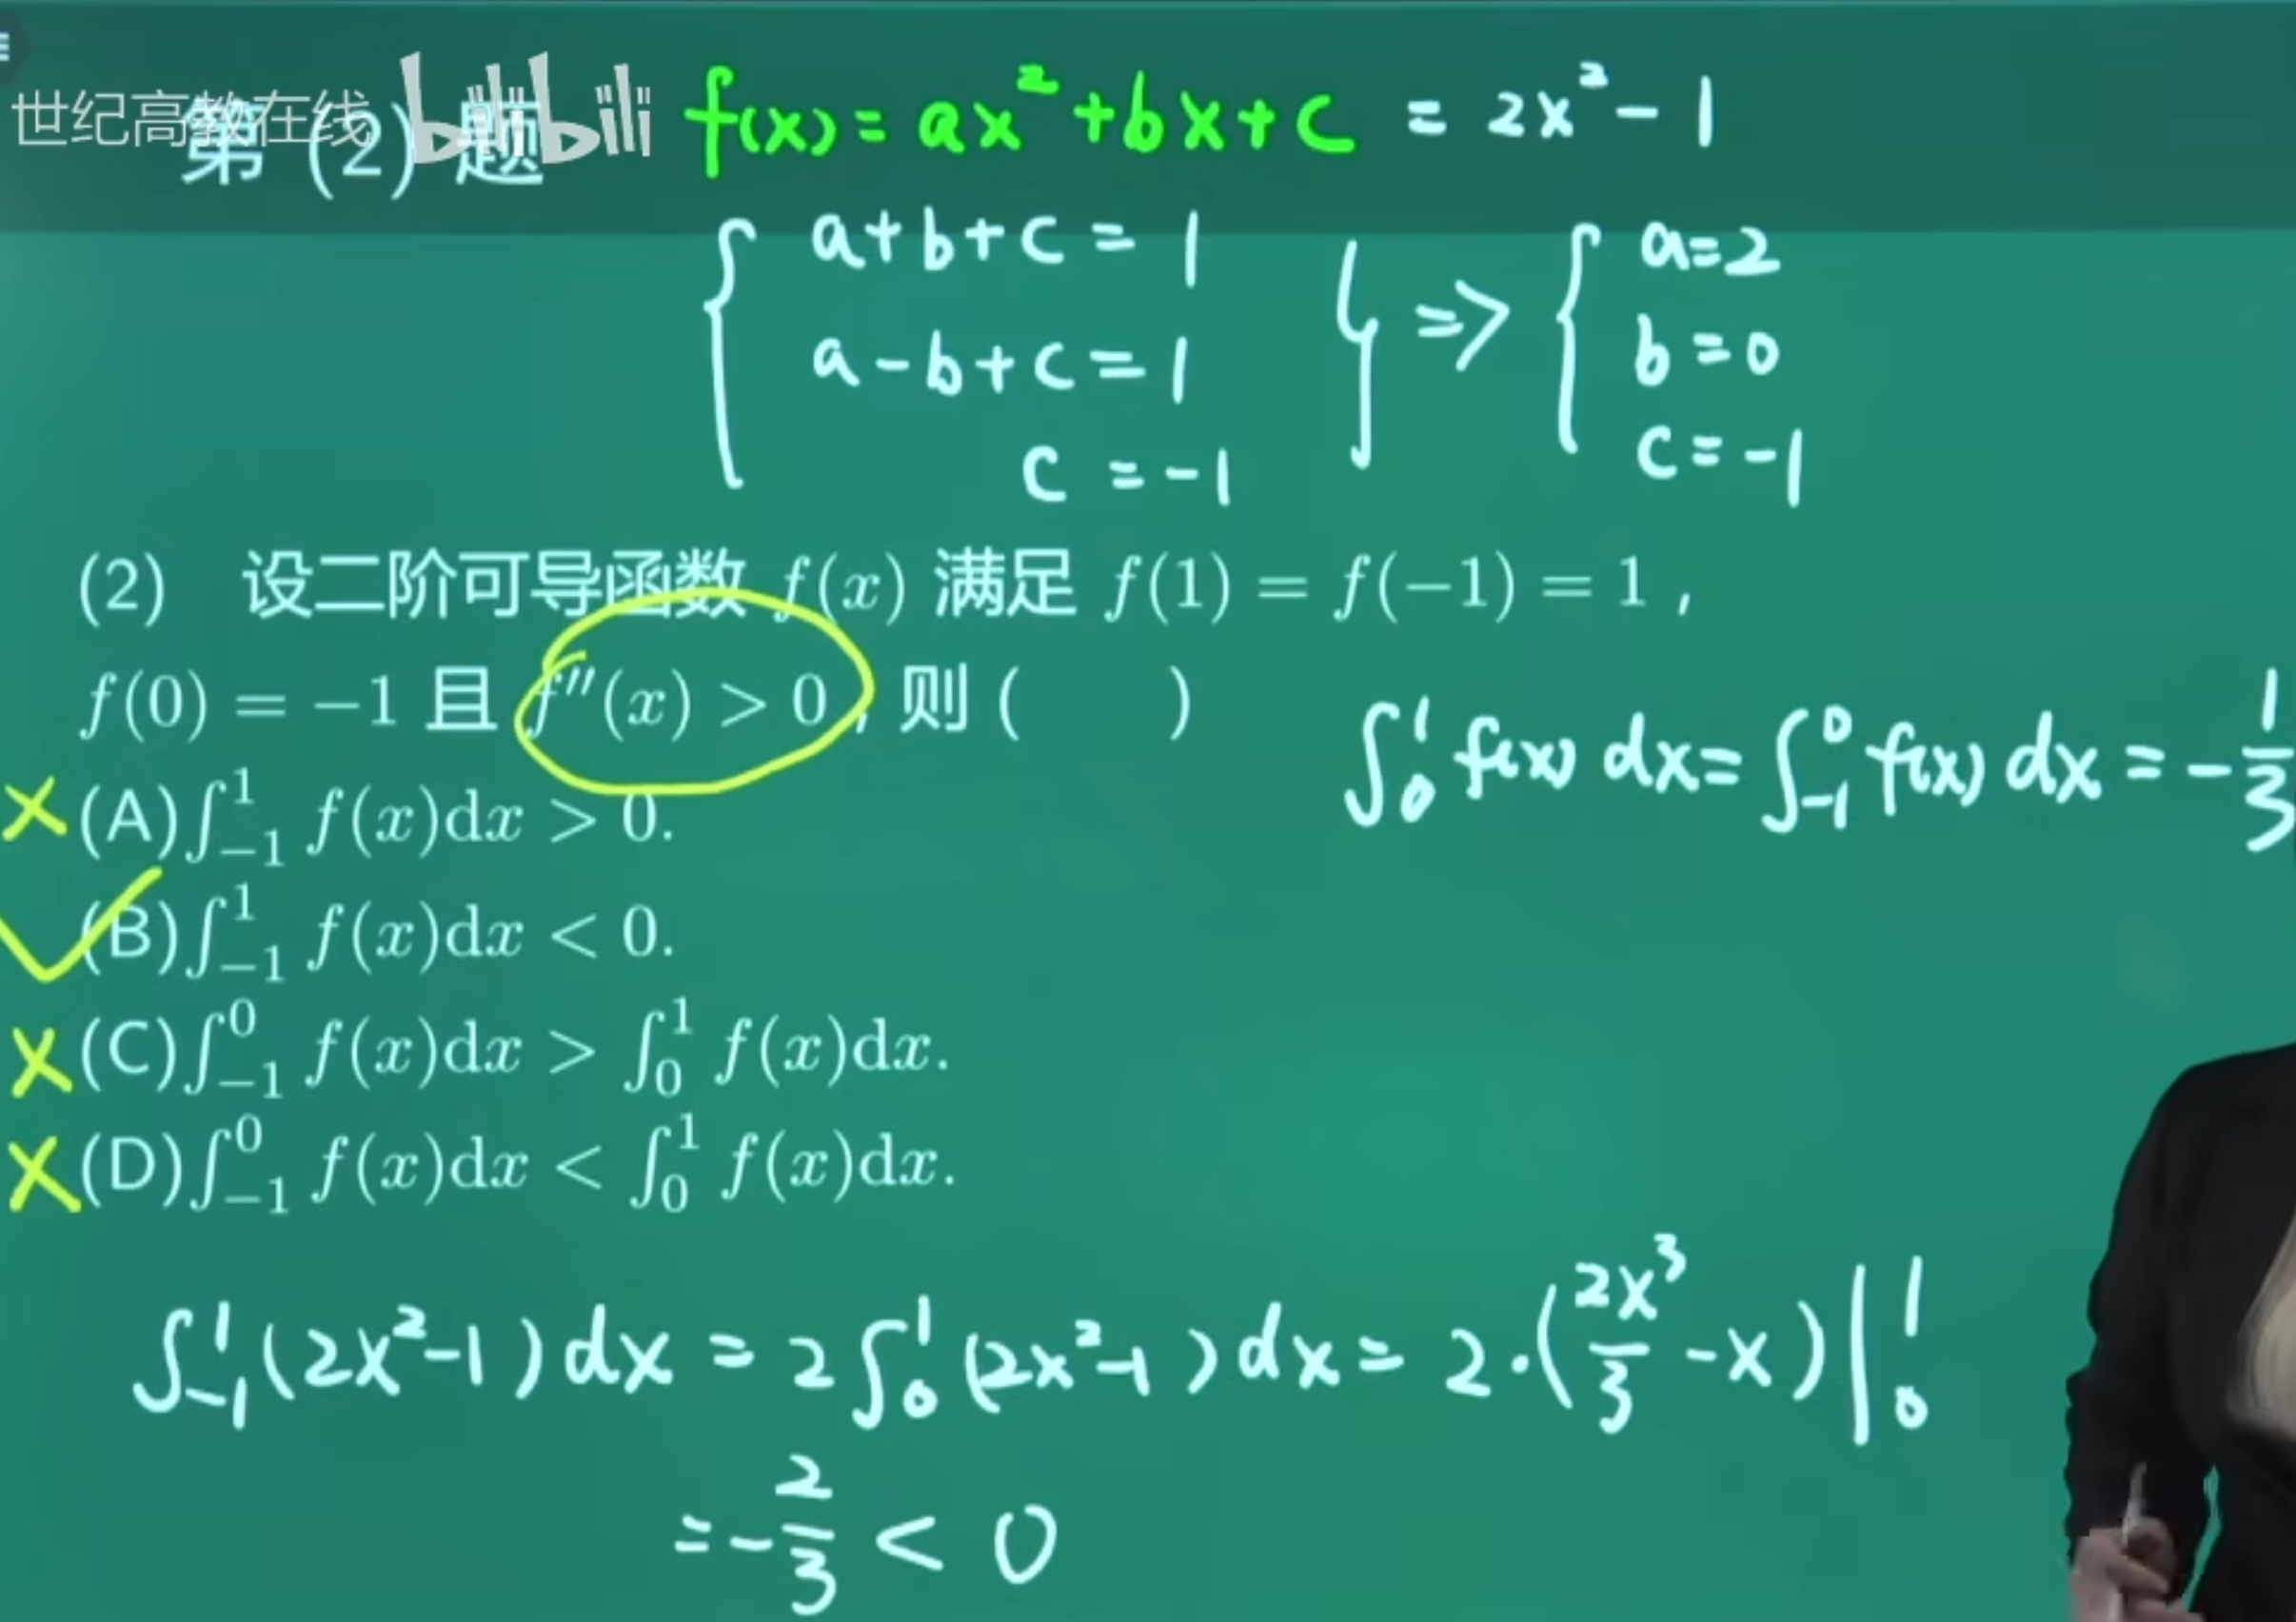 世纪高教在线 bilibili
第 (2) 题
f(x) = ax² + bx + c = 2x² - 1
{ a + b + c = 1 } => { a = 2
a - b + c = 1 b = 0
c = -1 c = -1
(2) 设二阶可导函数 f(x) 满足 f(1) = f(-1) = 1 ,
f(0) = -1 且 f''(x) > 0 , 则 ( )
∫₀¹ f(x) dx = ∫₋₁⁰ f(x) dx = -1/3
× (A) ∫₋₁¹ f(x)dx > 0.
✓ (B) ∫₋₁¹ f(x)dx < 0.
× (C) ∫₋₁⁰ f(x)dx > ∫₀¹ f(x)dx.
× (D) ∫₋₁⁰ f(x)dx < ∫₀¹ f(x)dx.
∫₋₁¹ (2x²-1) dx = 2∫₀¹ (2x²-1) dx = 2·(2x³/3 - x)|₀¹
= -2/3 < 0